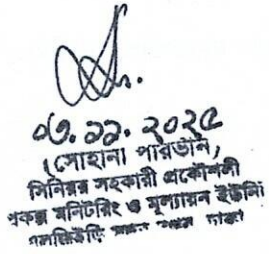 ০৩.১১.২০২৫
(সোহানা পারভীন)
সিনিয়র সহকারী প্রকৌশলী
প্রকল্প মনিটরিং ও মূল্যায়ন ইউনিট
এলজিইডি সদর দপ্তর ঢাকা